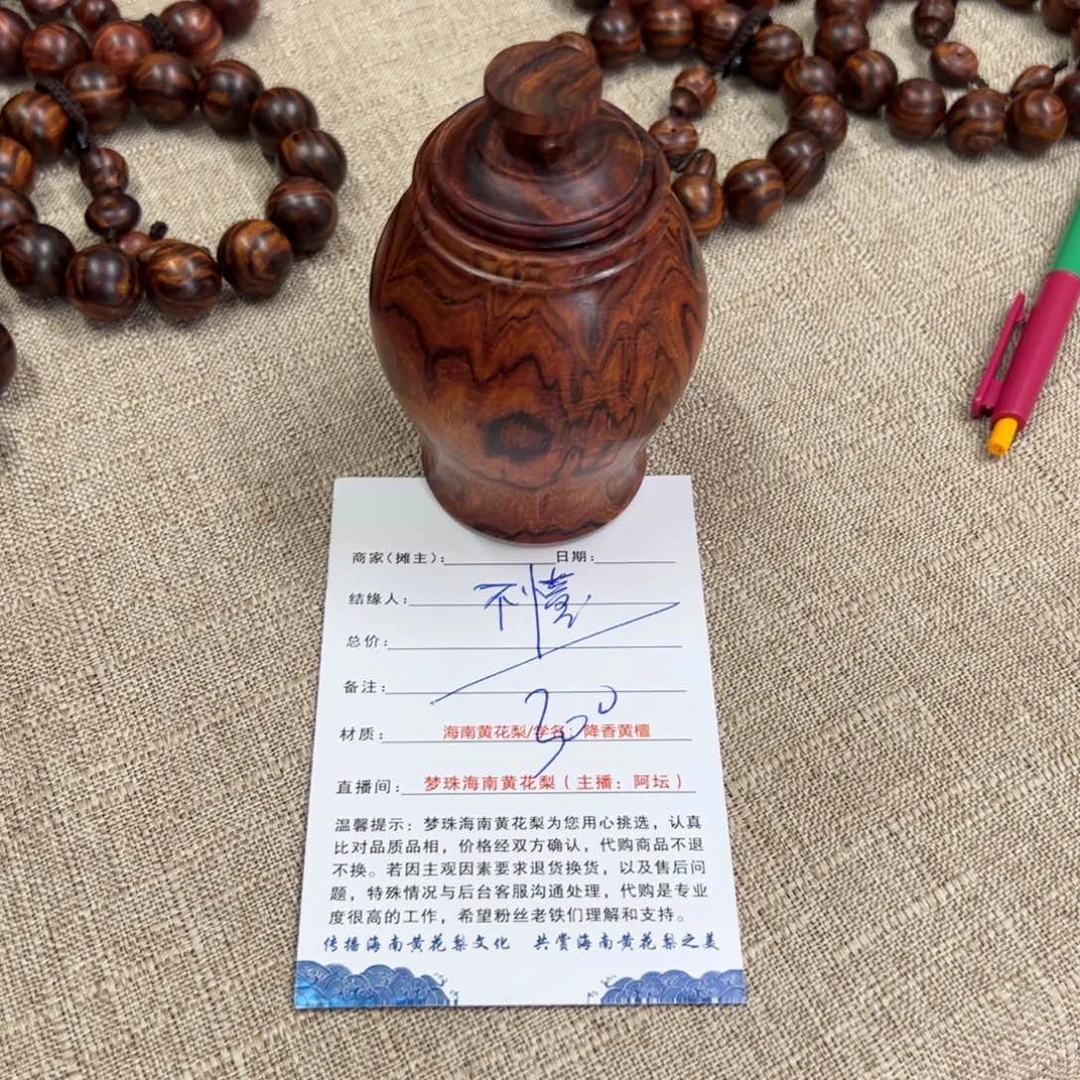 商家（摊主）： 日期：
结缘人：
总价：
备注：
300
材质： 海南黄花梨/学名：降香黄檀
直播间： 梦珠海南黄花梨（主播：阿坛）
温馨提示：梦珠海南黄花梨为您用心挑选，认真
比对品质品相，价格经双方确认，代购商品不退
不换。若因主观因素要求退货换货，以及售后问
题，特殊情况与后台客服沟通处理，代购是专业
度很高的工作，希望粉丝老铁们理解和支持。
传播海南黄花梨文化 共赏海南黄花梨之美